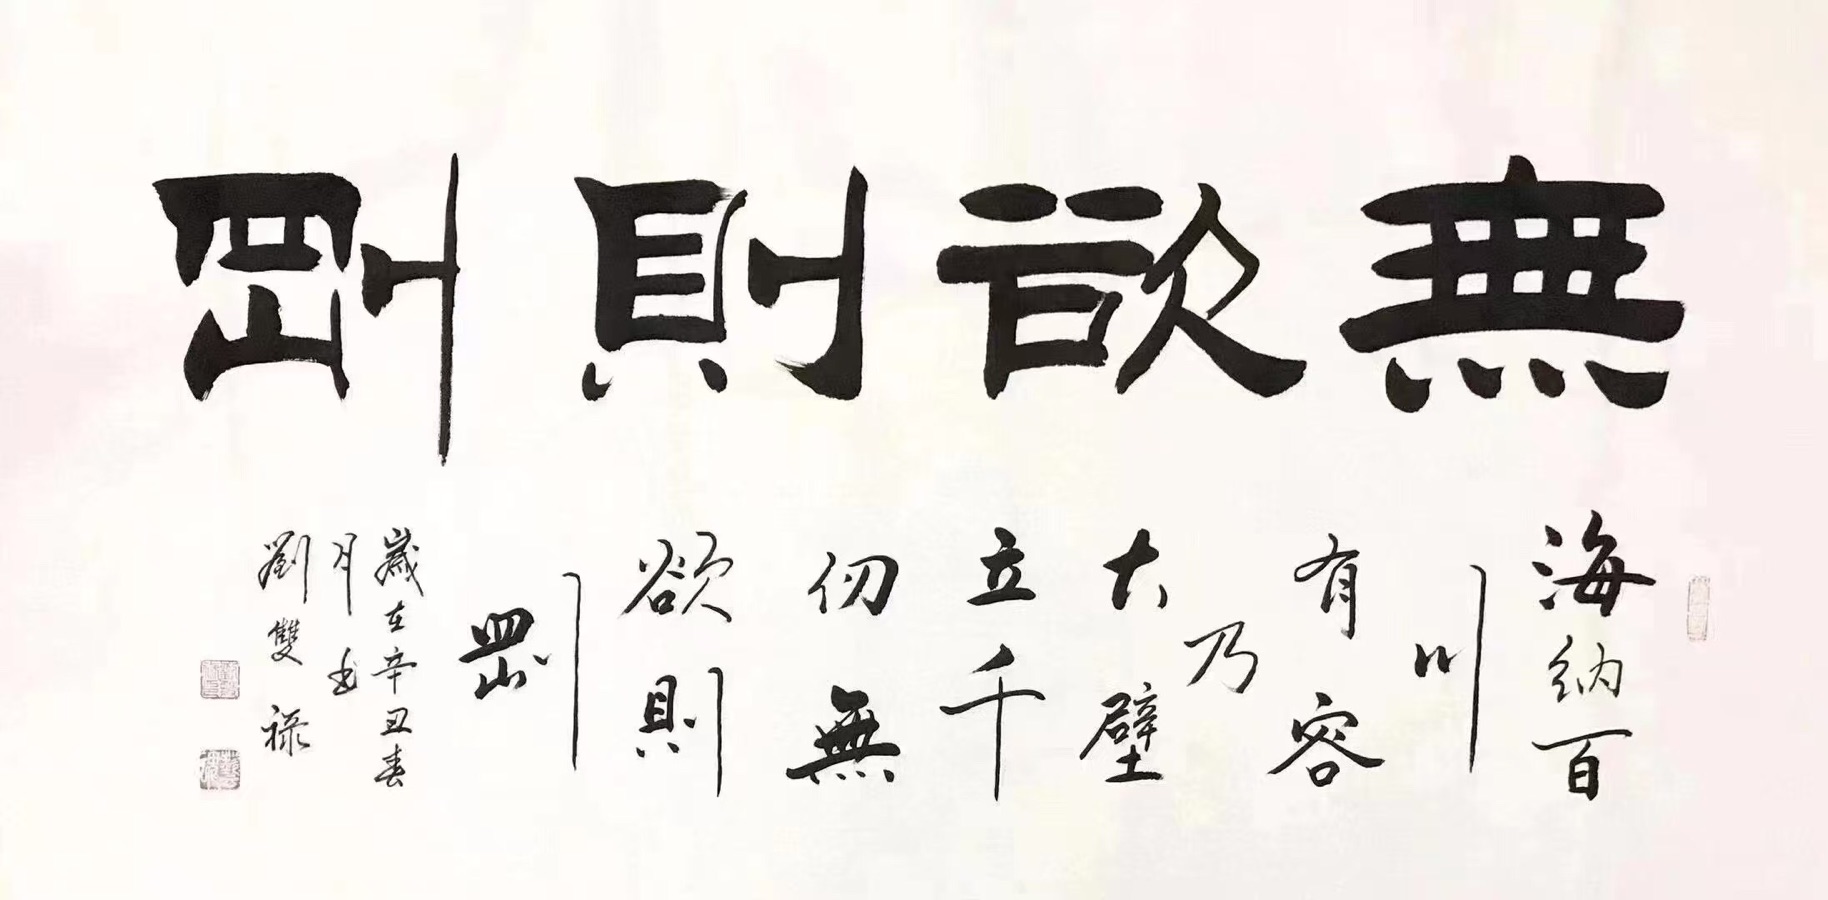 無欲則剛
海納百
川
有容
乃
大壁
立千
仞無
欲則
剛
歲在辛丑春
月书
劉雙禄